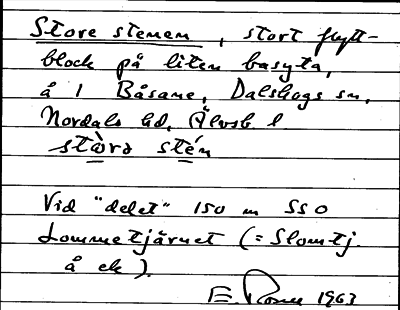 Store stenen, stort flytt-
block på liten basyta,
å 1 Båsane, Dalskogs sn,
Nordals hd, Älvsb. l
stòra stén
Vid "delet" 150 m SSO
Lommetjärnet (= Slomtj.
å ek).
E. 1963